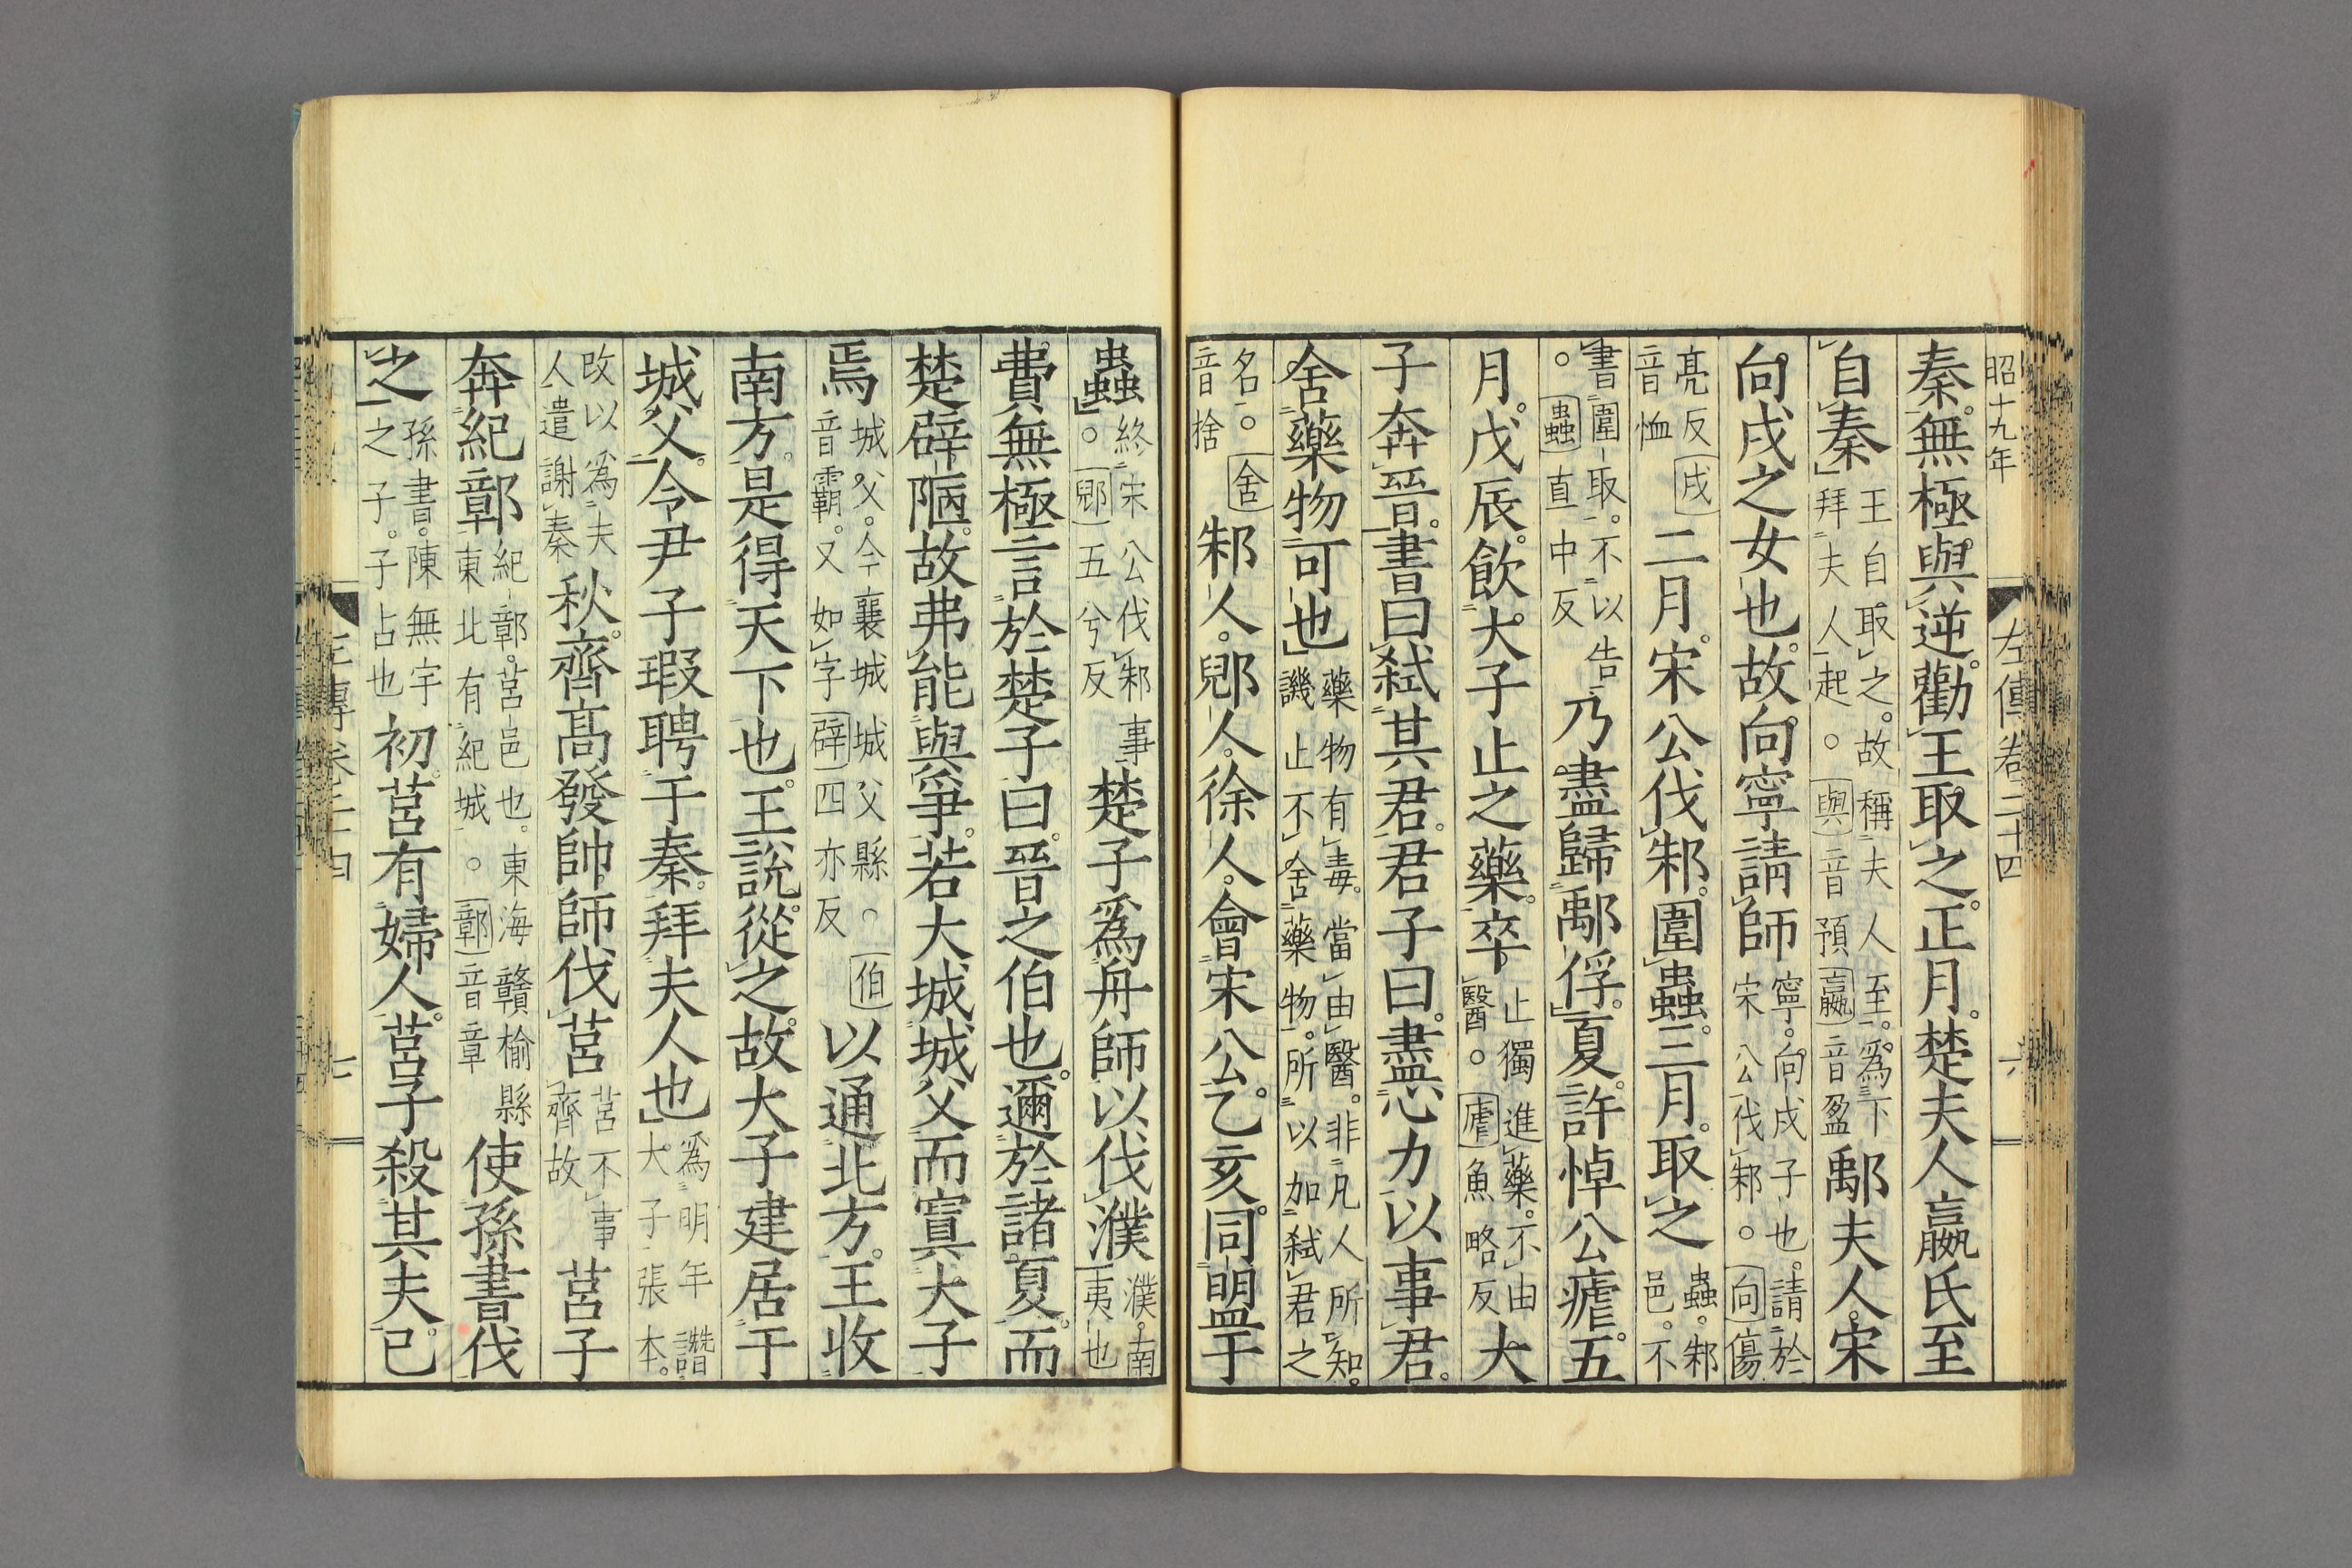 昭十九年
左傳卷二十四
六
秦。無極與逆。勸王取之。正月。楚夫人嬴氏至
自秦
王自取之。故稱夫人至。爲下
拜夫人起。○與音預嬴音盈
鄅夫人。宋
向戌之女也。故向寧請師
寧。向戌子也。請於
宋公伐邾。○向傷
亮反戌
音恤
二月。宋公伐邾。圍蟲。三月。取之
蟲。邾
邑。不
書圍取。不以告
○蟲直中反
乃盡歸鄅俘。夏。許悼公瘧。五
月。戊辰。飲大子止之藥。卒
止獨進藥。不由
醫。○瘧魚略反
大
子奔晉。書曰弑其君。君子曰。盡心力以事君。
舍藥物可也
藥物有毒。當由醫。非凡人所知。
譏止不舍藥物。所以加弑君之
名。○舍
音捨
邾人。郳人。徐人。會宋公。乙亥。同盟于
蟲
終宋公伐邾事
○郳五兮反
楚子爲舟師以伐濮
濮。南
夷也
費無極言於楚子曰。晉之伯也。邇於諸夏。而
楚辟陋。故弗能與爭。若大城城父而寘大子
焉
城父。今襄城城父縣。○伯
音霸。又如字辟四亦反
以通北方。王收
南方。是得天下也。王說。從之。故大子建居于
城父。令尹子瑕聘于秦。拜夫人也
爲明年譖
大子張本。
改以爲夫
人遣謝秦
秋。齊高發帥師伐莒
莒不事
齊故
莒子
奔紀鄣
紀鄣。莒邑也。東海贛榆縣
東北有紀城。○鄣音章
使孫書伐
之
孫書。陳無宇
之子。子占也
初。莒有婦人。莒子殺其夫。已
七